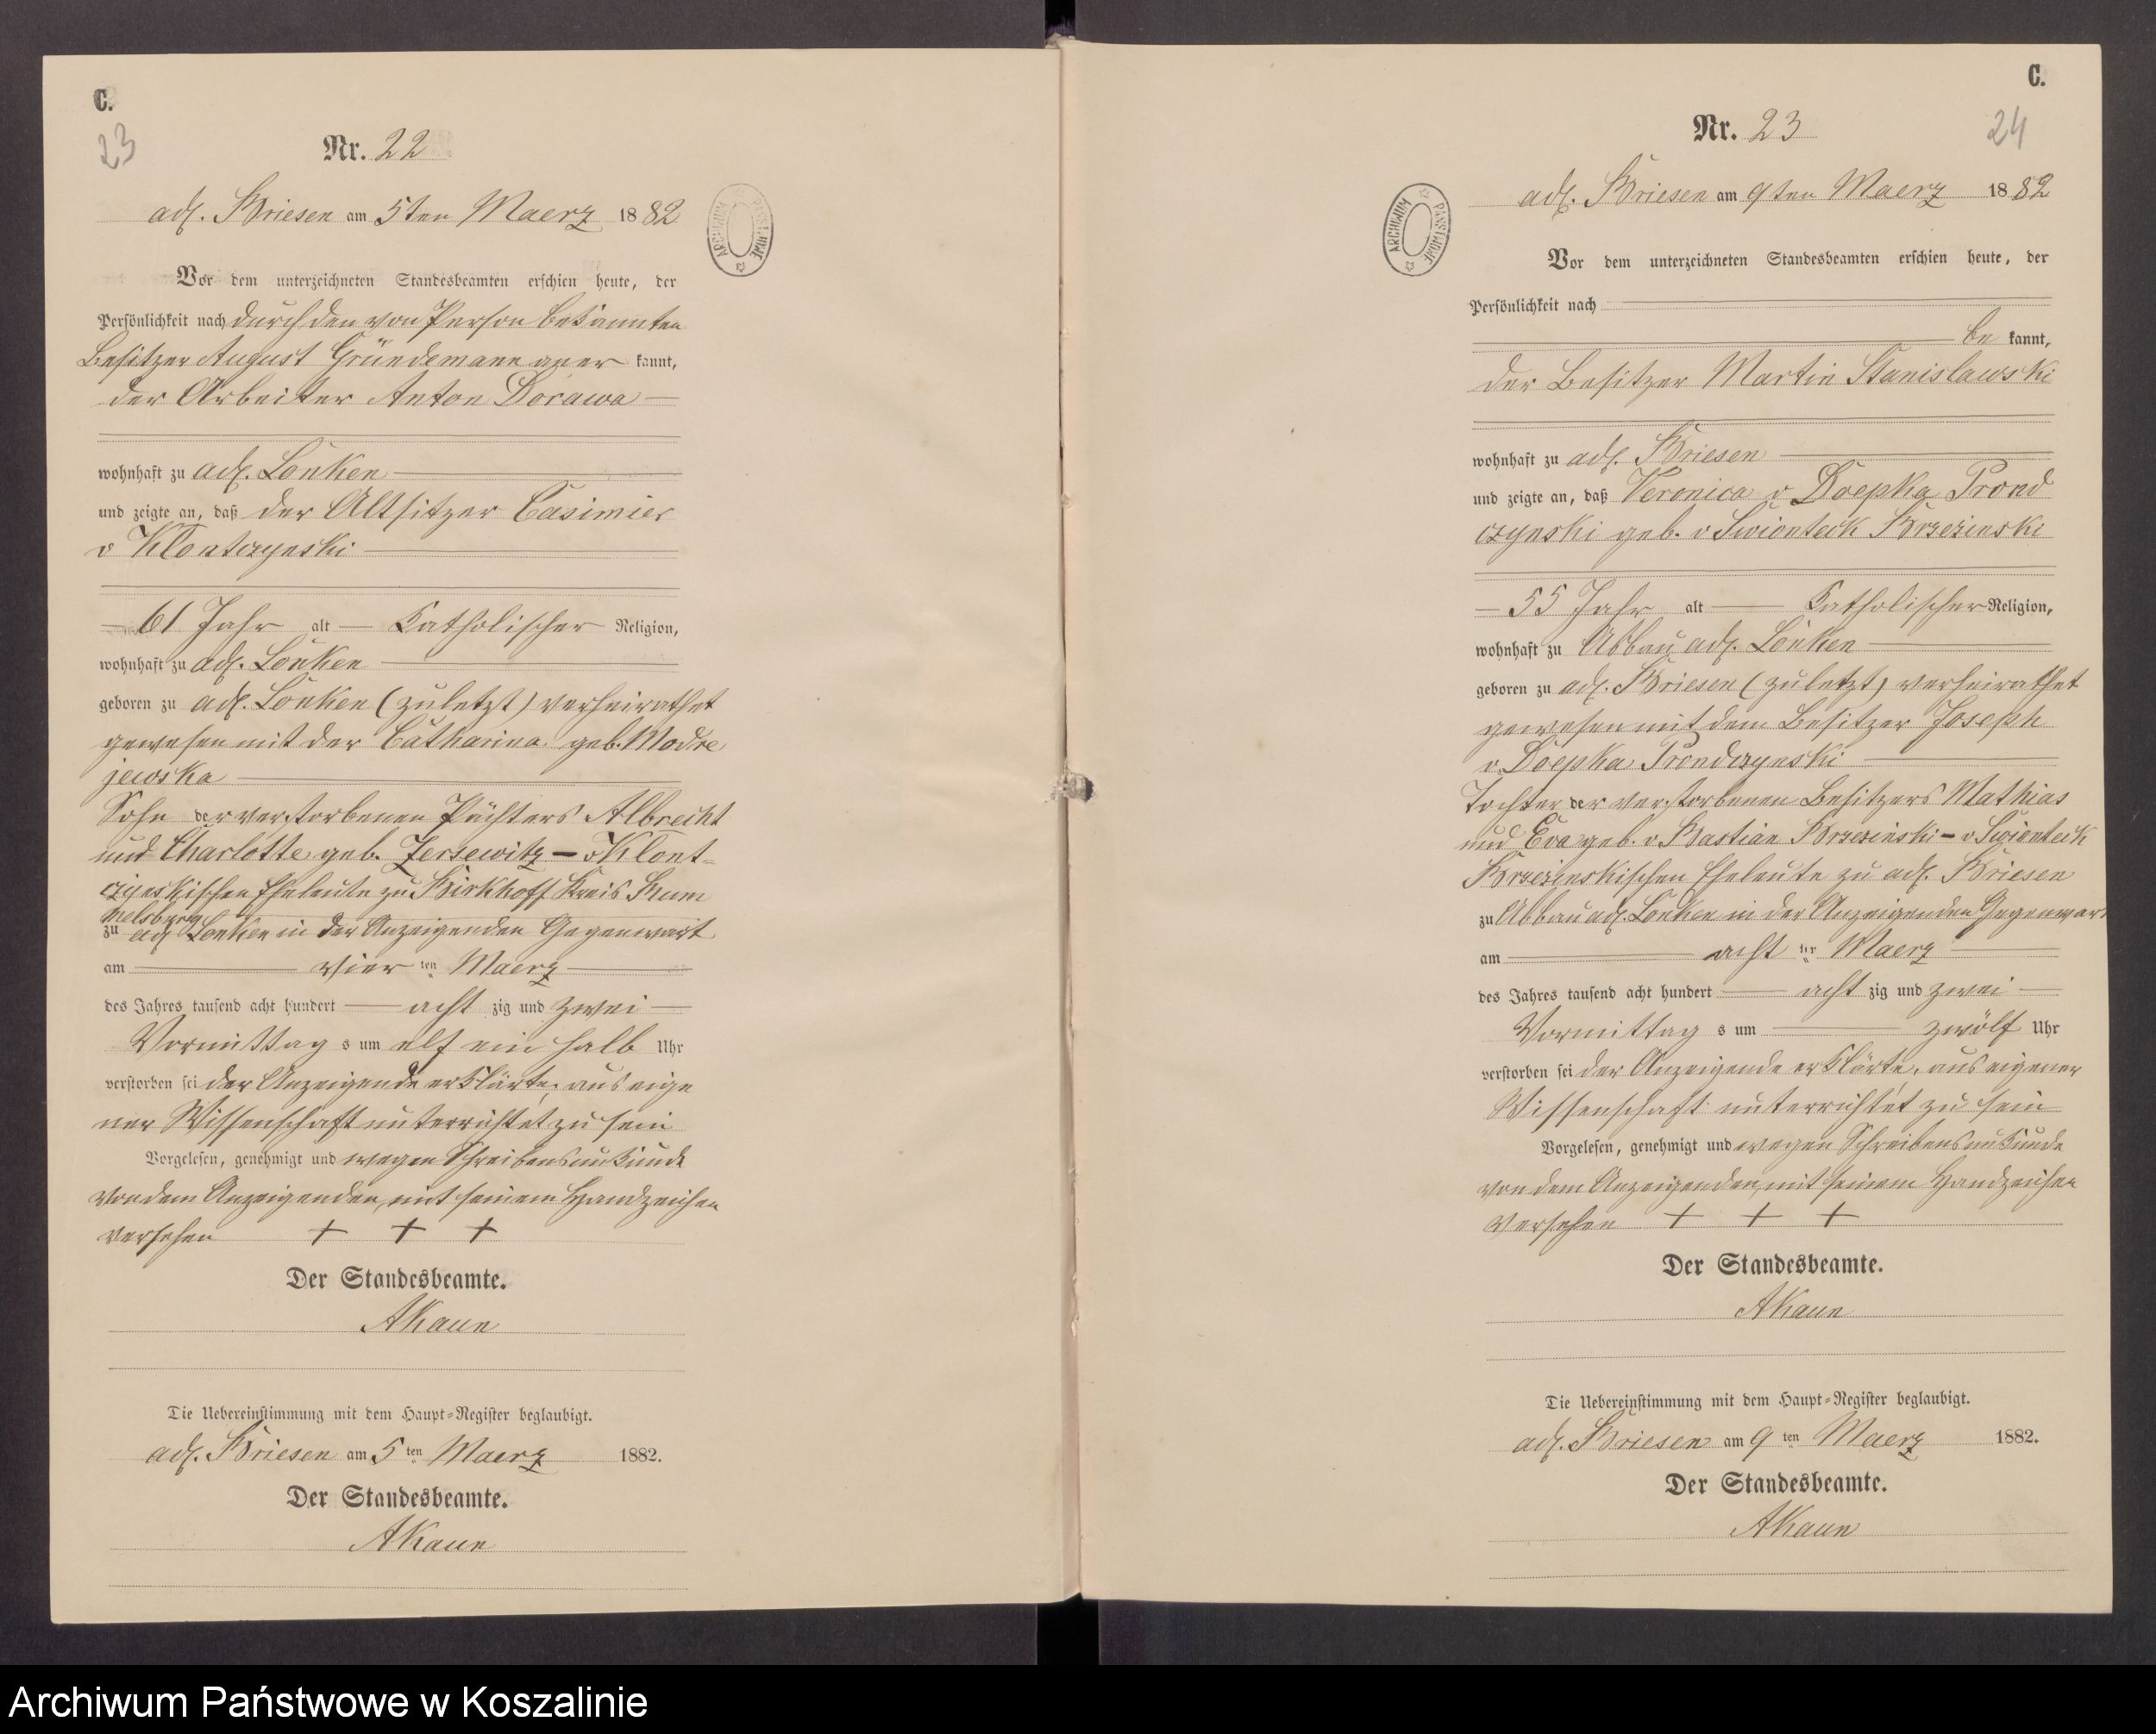 C.
23
Nr. 22
adl. Briesen am 5ten Maerz 1882
ARCHIWUM PAŃSTWOWE
Vor dem unterzeichneten Standesbeamten erschien heute, der
Persönlichkeit nach durch den von Person bekannten
Besitzer August Gründemann aner kannt,
der Arbeiter Anton Dorawa
wohnhaft zu adl. Lonken
und zeigte an, daß der Altsitzer Casimier
v Klontczynski
61 Jahr alt Katholischer Religion,
wohnhaft zu adl. Lonken
geboren zu adl. Lonken (zuletzt) verheirathet
gewesen mit der Catharina geb. Modre
jewska
Sohn der verstorbenen Pächters Albrecht
und Charlotte geb. Jersewitz - v Klont-
czynskischen Eheleute zu Birkhoff Kreis Rum
melsburg
zu adl Lonken in der Anzeigenden Gegenwart
am vier ten Maerz
des Jahres tausend acht hundert acht zig und zwei
Vormittag s um elf ein halb Uhr
verstorben sei der Anzeigende erklärte, aus eige
ner Wissenschaft unterrichtet zu sein
Vorgelesen, genehmigt und wegen Schreibensunkunde
von dem Anzeigenden, mit seinem Handzeichen
versehen + + +
Der Standesbeamte.
AKaun
Die Uebereinstimmung mit dem Haupt-Register beglaubigt.
adl. Briesen am 5 ten Maerz 1882.
Der Standesbeamte.
AKaun
C.
24
Nr. 23
adl. Briesen am 9ten Maerz 1882
ARCHIWUM PAŃSTWOWE
Vor dem unterzeichneten Standesbeamten erschien heute, der
Persönlichkeit nach
be kannt,
der Besitzer Martin Stanislawski
wohnhaft zu adl. Briesen
und zeigte an, daß Veronica v Doepka Prond
czynski geb. v Swionteck Brzezinski
55 Jahr alt Katholischer Religion,
wohnhaft zu Abbau adl. Lonken
geboren zu adl. Briesen (zuletzt) verheirathet
gewesen mit dem Besitzer Joseph
v. Doepka Prondczynski
Tochter der verstorbenen Besitzers Mathias
und Eva geb. v. Bastian Brzezinski - v Swionteck
Brzezinskischen Eheleute zu adl. Briesen
zu Abbau adl. Lonken in der Anzeigenden Gegenwart
am acht ten Maerz
des Jahres tausend acht hundert acht zig und zwei
Vormittag s um zwölf Uhr
verstorben sei der Anzeigende erklärte, aus eigener
Wissenschaft unterrichtet zu sein
Vorgelesen, genehmigt und wegen Schreibensunkunde
von dem Anzeigenden, mit seinem Handzeichen
versehen + + +
Der Standesbeamte.
AKaun
Die Uebereinstimmung mit dem Haupt-Register beglaubigt.
adl. Briesen am 9 ten Maerz 1882.
Der Standesbeamte.
AKaun
Archiwum Państwowe w Koszalinie